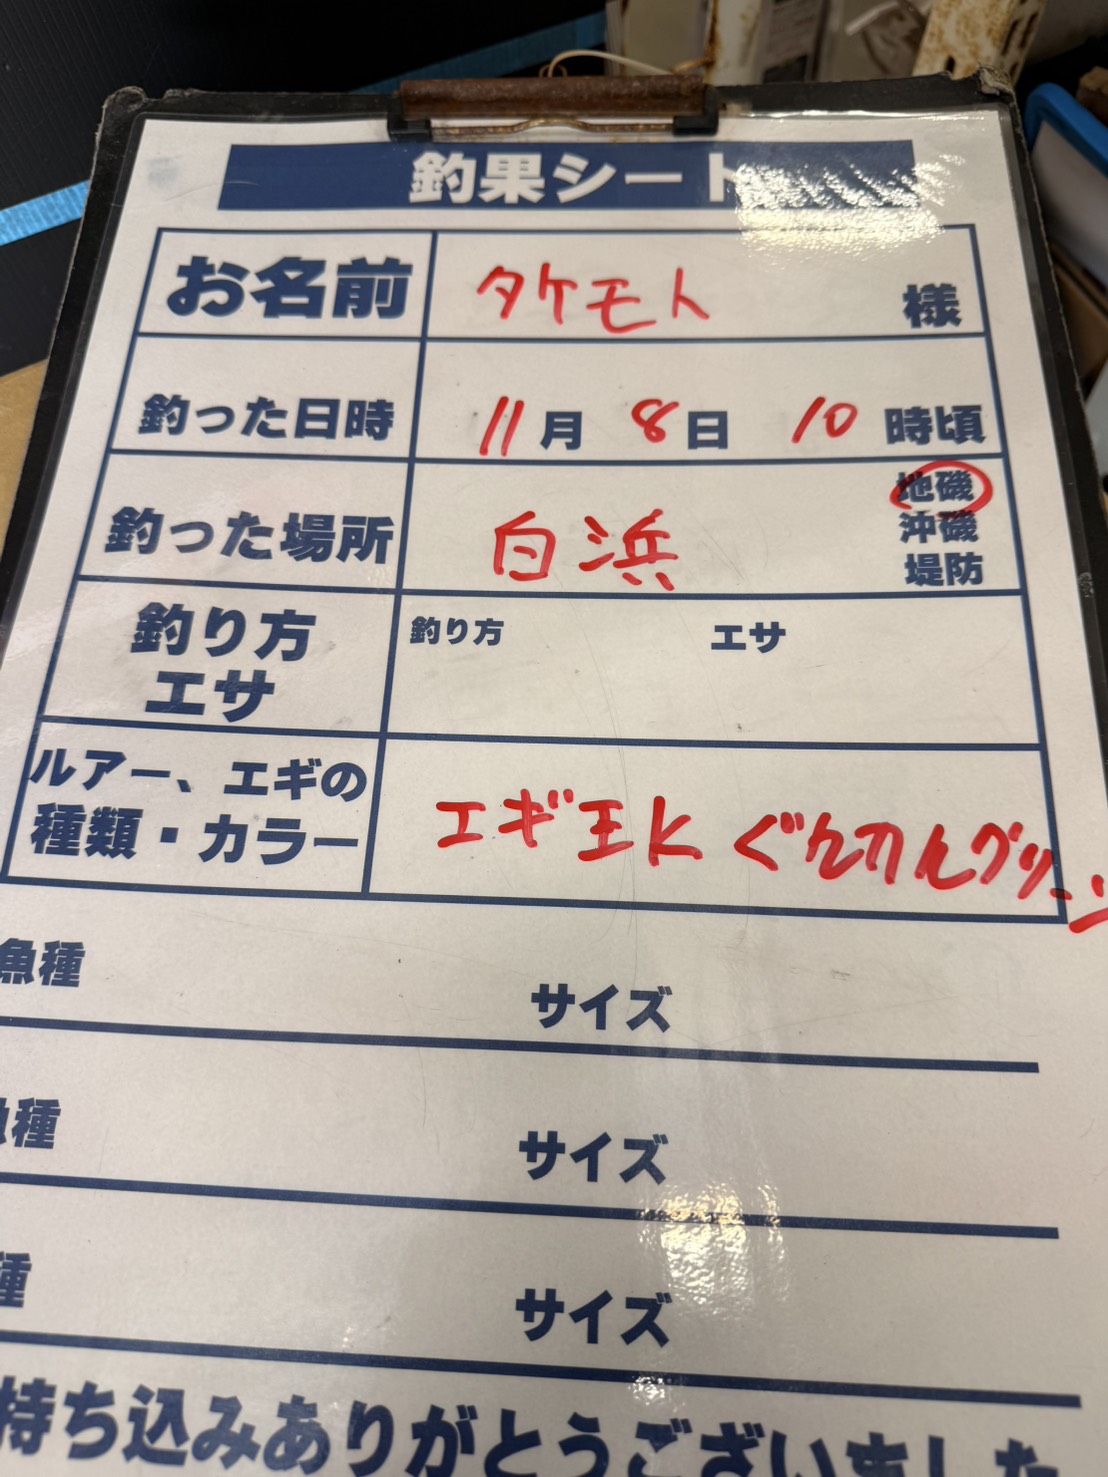 釣果シート
お名前 タケモト 様
釣った日時 11月 8日 10時頃
釣った場所 白浜 地磯
沖磯
堤防
釣り方 エサ
釣り方 エサ
ルアー、エギの
種類・カラー エギ王K ぐんかんグリーン
魚種 サイズ
魚種 サイズ
種 サイズ
持ち込みありがとうございました